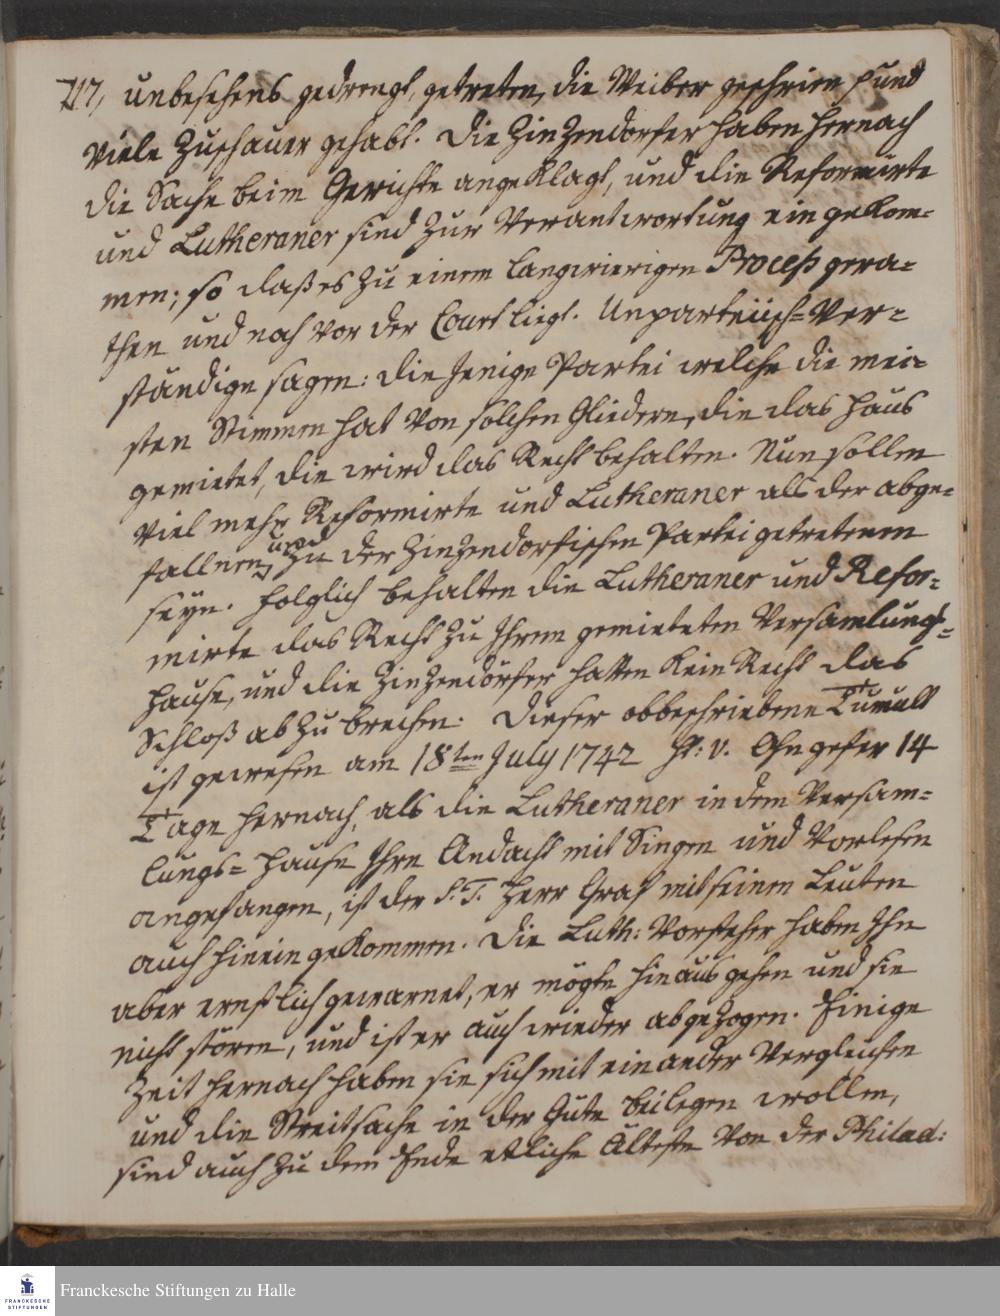 217, unbesehens gedrengt, getreten, die Weiber geschrien, und
viele Zuschauer gehabt. Die Zinzendorfer haben hernach
die Sache beim Gerichte angeklagt, und die Reformirte
und Lutheraner sind zur Verantwortung eingekom=
men; so daß es zu einem langwierigen Proceß gera=
then und noch vor der Court liegt. Unparteiisch=Ver=
ständige sagen: diejenige Partei welche die mei=
sten Stimmen hat von solchen Gliedern, die das Haus
gemietet, die wird das Recht behalten. Nun sollen
viel mehr Reformirte und Lutheraner als der abge=
fallnen, u. zu der Zinzendorfischen Partei getretenen
seyn. folglich behalten die Lutheraner und Refor=
mirte das Recht zu Ihrem gemieteten Versamlungs=
Hause, und die Zinzendörfer hatten kein Recht das
Schloß abzubrechen. Dieser obbeschriebene Tumult
ist gewesen am 18ten July 1742 st. v. Ohngefer 14
Tage hernach, als die Lutheraner in dem Versam=
lungs=Hause Ihre Andacht mit Singen und Vorlesen
angefangen, ist der S. T. Herr Graf mit seinen Leuten
auch hinein gekommen. Die Luth: Vorsteher haben Ihn
aber ernstlich gewarnet, er mögte hinaus gehen und sie
nicht stören, und ist er auch wieder abgezogen. Einige
Zeit hernach haben sie sich mit einander vergleichen
und die Streitsache in der Güte beilegen wollen,
sind auch zu dem Ende etliche Älteste von der Philad:
FRANCKESCHE
STIFTUNGEN
Franckesche Stiftungen zu Halle